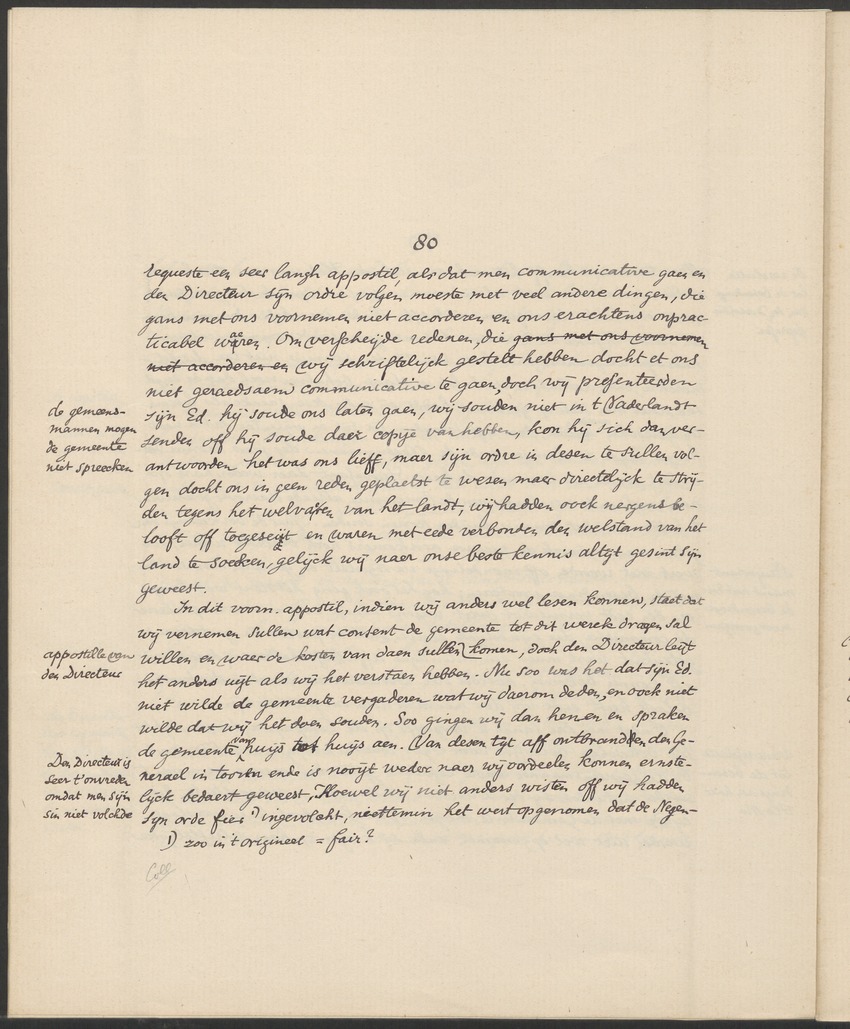 80
requeste een seer langh appostil, als dat men communicative gaen en
den Directeur sijn ordre volgen moeste met veel andere dingen, die
gans met ons voornemen niet accorderen en ons erachtens onprac-
ticabel waeren. Om verscheijde redenen, die gans met ons voornemen
niet accorderen en wij schriftelijck gestelt hebben docht et ons
niet geraedsaem communicative te gaen, doch wij presenteerden
sijn Ed. hij soude ons laten gaen, wij souden niet in 't Vaderlandt
senden off hij soude daer copije van hebben, kon hij sich dan ver-
antwoorden het was ons lieff, maer sijn ordre in desen te sullen vol-
gen docht ons in geen reden geplaetst te wesen, maer directelijck te strij-
den tegens het welvaren van het landt, wij hadden oock nergens be-
looft off toegeseijt en waren met eede verbonden den welstand van het
land te soecken, gelijck wij naer onse beste kennis altijt gesint sijn
geweest.
de gemeens-
mannen mogen
de gemeente
niet spreecken
In dit voorn. appostil, indien wij anders wel lesen konnen, staet dat
wij vernemen sullen wat consent de gemeente tot dit werck dragen sal
willen en waer de kosten van daen sullen komen, doch den Directeur leijt
het anders uijt als wij het verstaen hebben. Nu soo was het dat sijn Ed.
niet wilde de gemeente vergaderen wat wij daerom deden, en oock niet
wilde dat wij het doen souden. Soo gingen wij dan henen en spraken
de gemeente van huijs tot huijs aen. Van desen tijt aff ontbrandden den Ge-
nerael in toorn ende is nooijt weder naer wij oordeelen konnen ernste-
lijck bedaert geweest, Hoewel wij niet anders wisten off wij hadden
sijn orde fier 1) ingevolcht, niettemin het wert opgenomen dat de Negen-
appostille van
den Directeur
Den Directeur is
seer t'onvreden
omdat men sijn
sin niet volchde
1) zoo in 't origineel = fair?
Coll